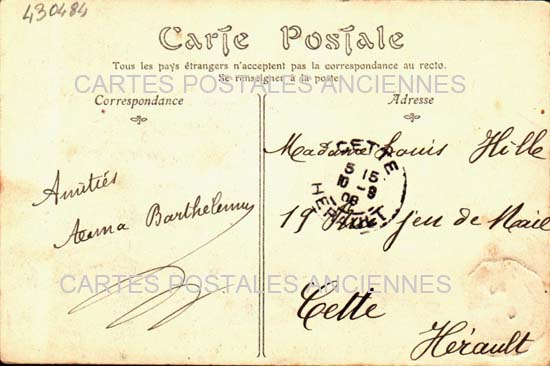 430484
Carte Postale
Tous les pays étrangers n'acceptent pas la correspondance au recto.
Se renseigner à la poste
CARTES POSTALES ANCIENNES
Correspondance
Adresse
Amitiés
Barthélemy
Madame Louis Hille
19 jeu de Mail
Cette
Hérault
CETTE
5 15
10 - 9
08
HERAULT
CARTES POSTALES ANCIENNES